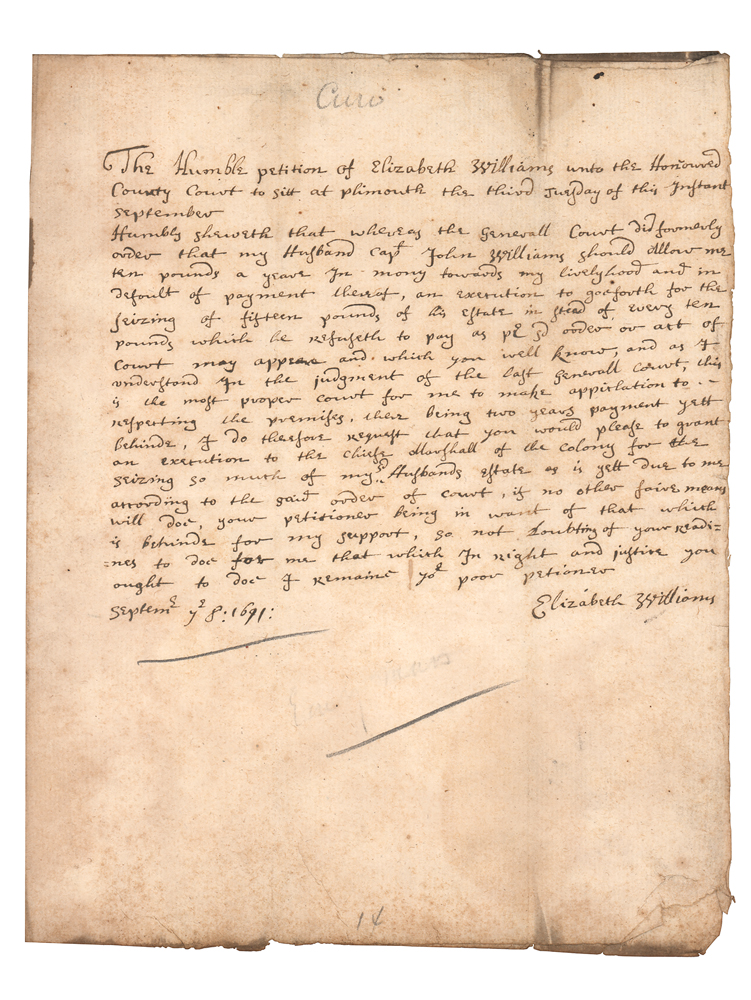 Curo
The Humble petition of Elizabeth Williams unto the Honoured
County Court to sitt at plimouth the third Tuesday of this Instant
September
Humbly sheweth that whereas the Generall Court did formerly
order that my Husband Capt John Williams should Allow me
ten pounds a yeare In mony towards my livelyhood and in
default of payment thereof, an execution to goe forth for the
seizing of fifteen pounds of his estate in stead of every ten
pounds which he refuseth to pay as pr sd order or act of
Court may appeare and which you well know, and as I
understand In the judgment of the last Generall Court, this
is the most proper Court for me to make application to
respecting the premises, there being two years payment yett
behinde, I do therefore request that you would please to grant
an execution to the chiefe Marshall of the Colony for the
seizing so much of my sd Husbands estate as is yett due to me
according to the said order of Court, if no other faire means
will doe, your petitioner being in want of that which
is behinde for my support, so not doubting of your readi=
=nes to doe for me that which In right and justice you
ought to doe I remaine yor poor petioner
Septemr ye 8: 1691: Elizabeth Williams
14